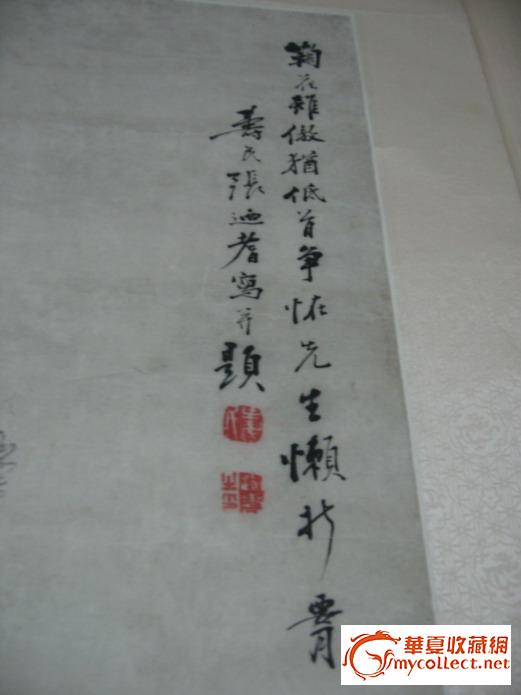 鞠花雖傲猶低首爭怪先生懶折腰
壽民張迺耆寫并題
華夏收藏網
mycollect.net